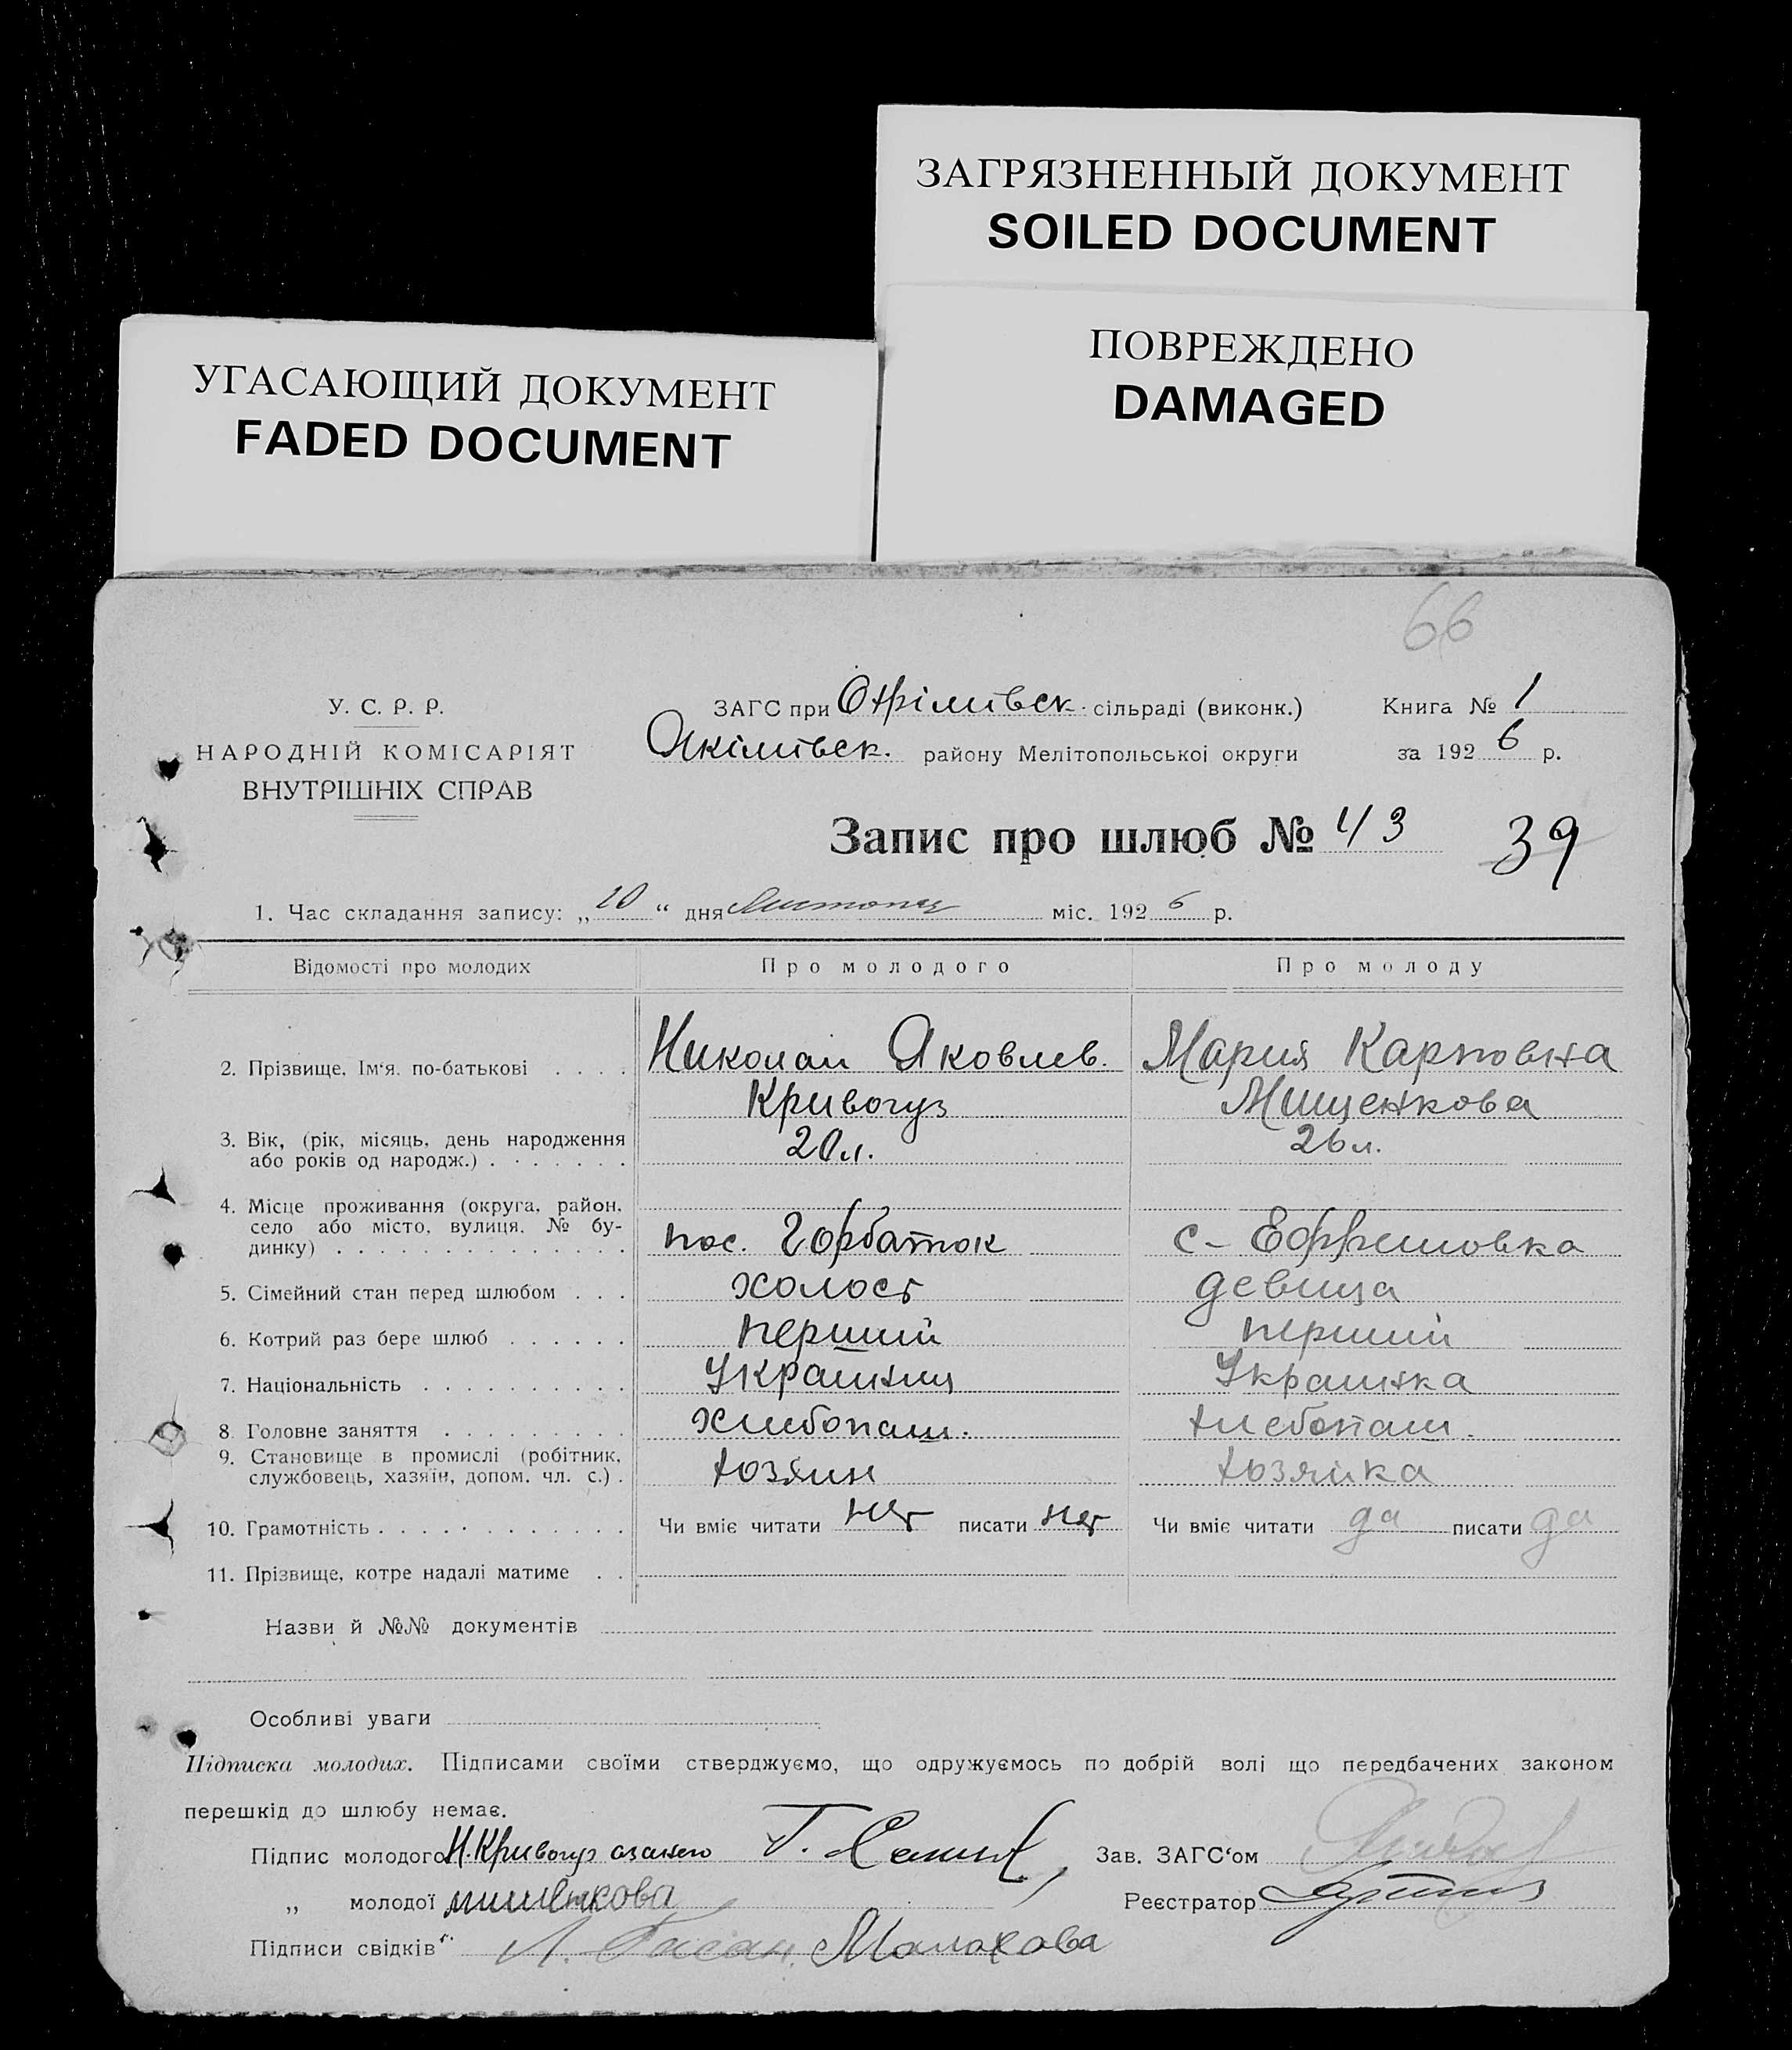 ЗАГРЯЗНЕННЫЙ ДОКУМЕНТ
SOILED DOCUMENT
УГАСАЮЩИЙ ДОКУМЕНТ
FADED DOCUMENT
ПОВРЕЖДЕНО
DAMAGED
66
У. С. Р. Р.
НАРОДНІЙ КОМІСАРІЯТ
ВНУТРІШНІХ СПРАВ
ЗАГС при сільраді (виконк.) Книга № 1
Якімівськ. району Мелітопольської округи за 1926 р.
Запис про шлюб № 43 39
1. Час складання запису: „10“ дня Листопад міс. 1926 р.
Відомості про молодих Про молодого Про молоду
2. Прізвище, Ім‘я, по-батькові . . . . Николай Яковлев. Мария Карповна
Кривогуз Мищенкова
3. Вік, (рік, місяць, день народження 20 л. 26 л.
або років од народж.) . . . . . . .
4. Місце проживання (округа, район,
село або місто, вулиця, № бу-
динку) . . . . . . . . . . . . . . пос. Горбаток с- Ефремовка
5. Сімейний стан перед шлюбом . . . холост девица
6. Котрий раз бере шлюб . . . . . . перший перший
7. Національність . . . . . . . . . . Украйнец Украинка
8. Головне заняття . . . . . . . . . хлибопаш. хлебопаш.
9. Становище в промислі (робітник, хозяин хозяйка
службовець, хазяїн, допом. чл. с.) .
10. Грамотність . . . . . . . . . . . . Чи вміє читати нет писати нет Чи вміє читати да писати да
11. Прізвище, котре надалі матиме . .
Назви й №№ документів
Особливі уваги
Підписка молодих. Підписами своїми стверджуємо, що одружуємось по добрій волі що передбачених законом
перешкід до шлюбу немає.
Підпис молодого Н. Кривогуз Г. Зав. ЗАГС‘ом
„ молодої мишенкова Реєстратор
Підписи свідків Малахова